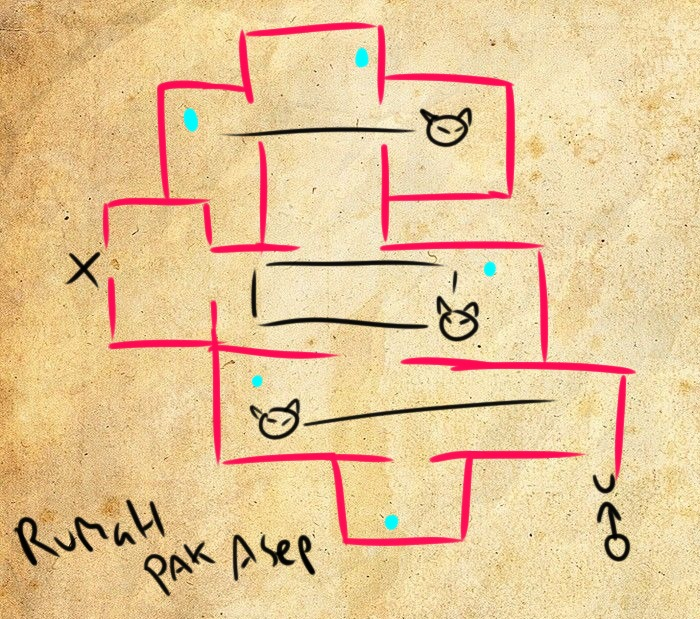 X
RUMAH
PAK ASEP